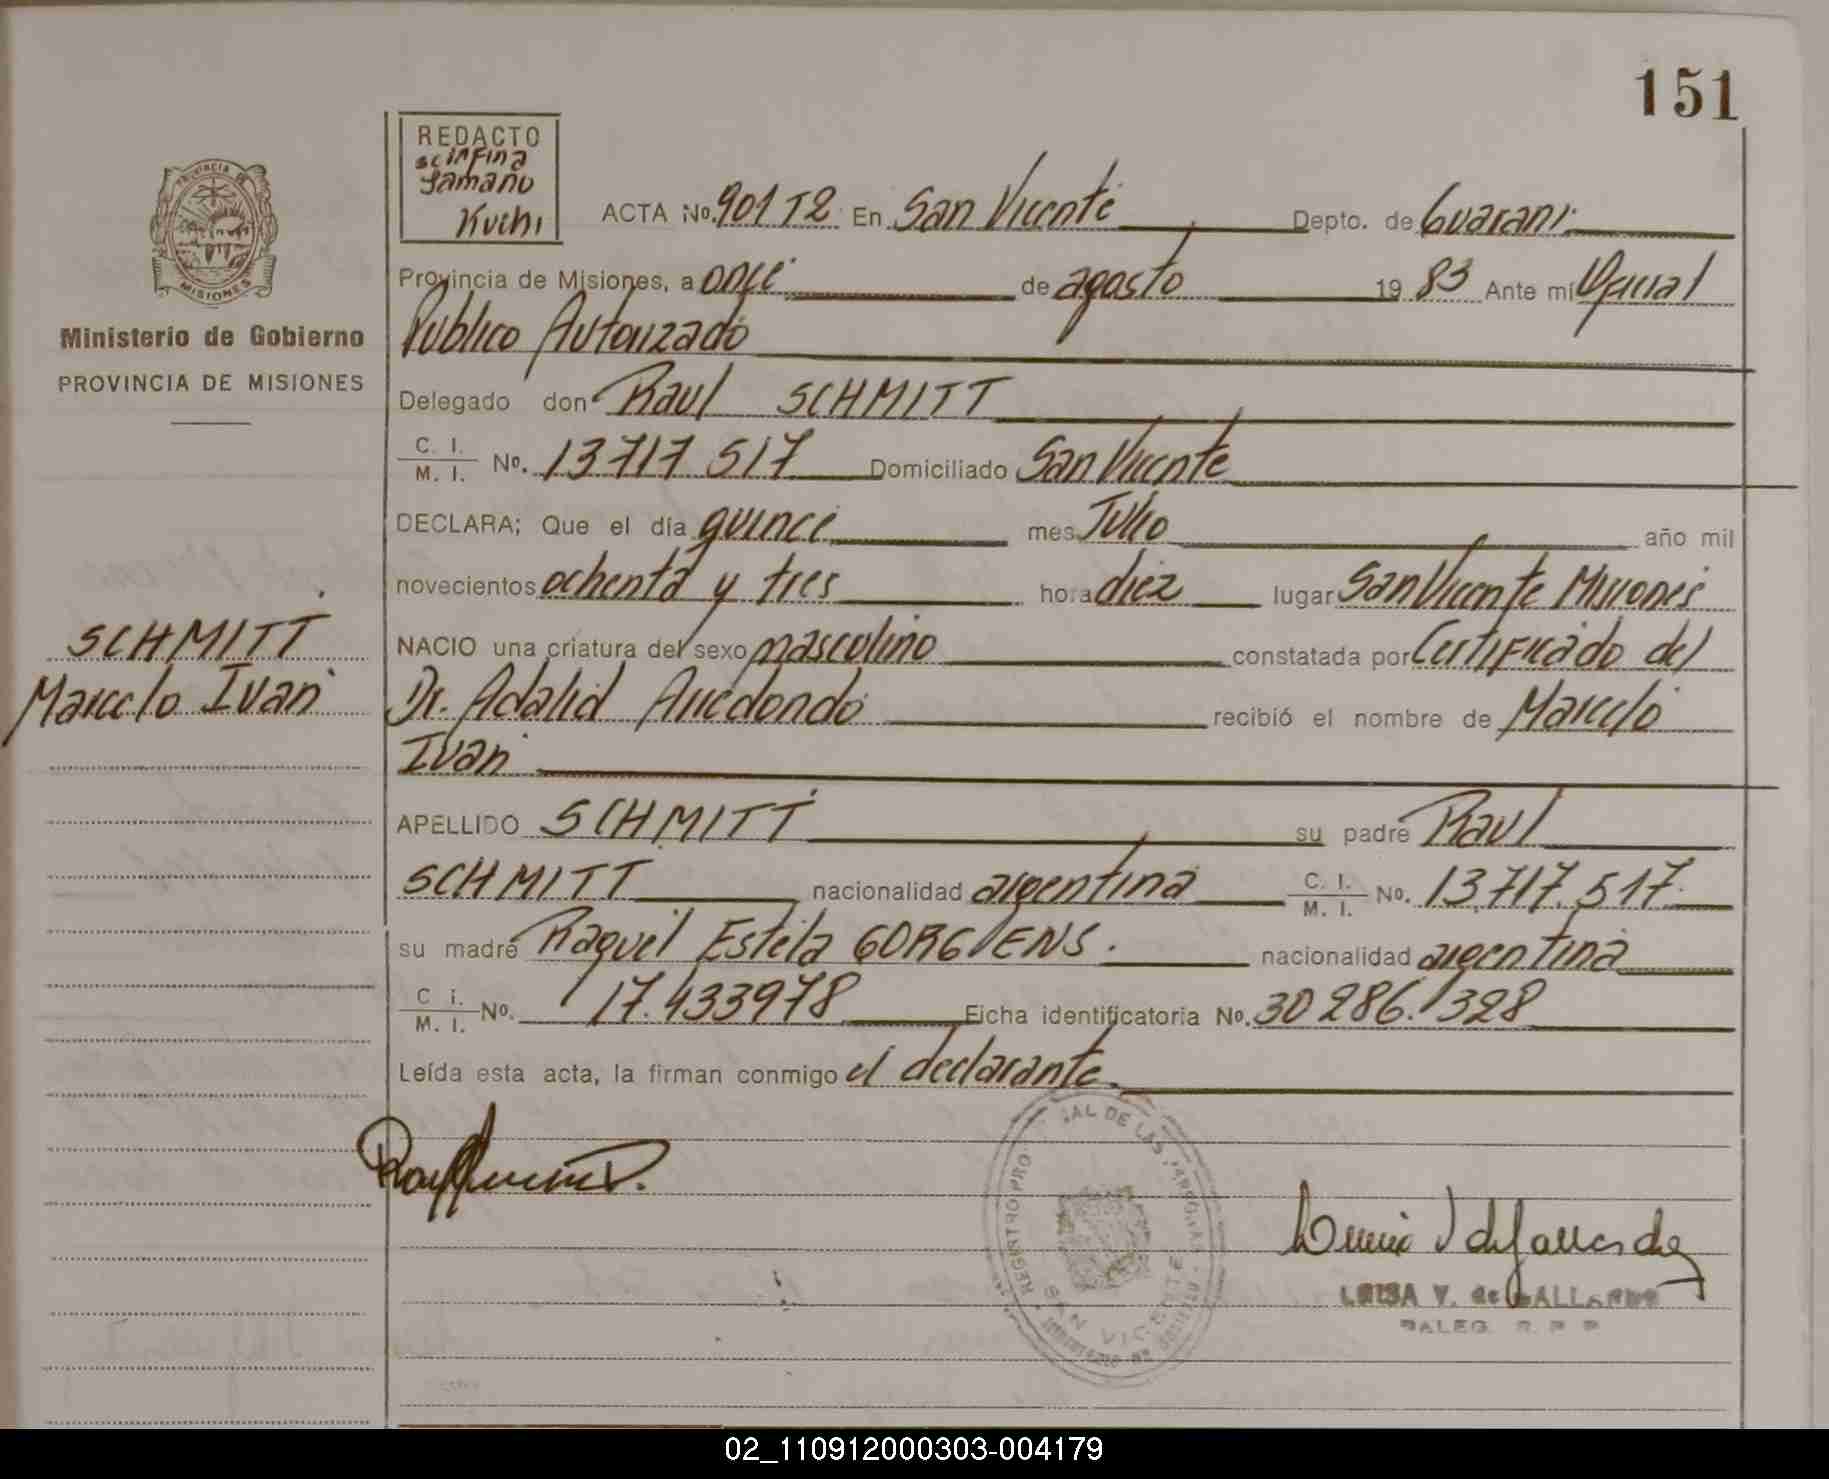 151
REDACTO
Tamaño
Kuchi
PROVINCIA DE
MISIONES
Ministerio de Gobierno
PROVINCIA DE MISIONES
ACTA No. 901 T2 En San Vicente Depto. de Guarani
Provincia de Misiones, a once de agosto 1983 Ante mi Oficial
Publico Autorizado
Delegado don Raul SCHMITT
C. I.
M. I. No. 13717 517 Domiciliado San Vicente
DECLARA; Que el día quince mes Julio año mil
novecientos ochenta y tres hora diez lugar San Vicente Misiones
SCHMITT
Marcelo Ivan
NACIO una criatura del sexo masculino constatada por Certificado del
Dr. Adalid Arredondo recibió el nombre de Marcelo
Ivan
APELLIDO SCHMITT su padre Raul
SCHMITT nacionalidad argentina C. I.
M. I. No. 13.717.517.
su madre Raquel Estela GORGIENS. nacionalidad argentina
C i.
M. I. No. 17.433978 Ficha identificatoria No. 30 286.328
Leída esta acta, la firman conmigo el declarante.
REGISTRO PRO IAL DE LAS
SAN VICENTE
LUISA V. de GALLARDO
DALEG. R. P. P.
02_110912000303-004179